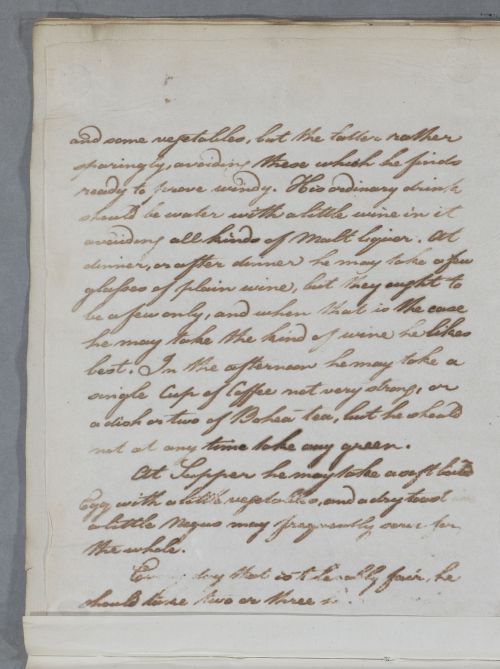 and some vegetables, but the latter rather
sparingly, avoiding these which he finds
ready to prove windy. His ordinary drink
should be water with a little wine in it
avoiding all kinds of Malt liquor. At
dinner, or after dinner he may take a few
glasses of plain wine, but they ought to
be a few only, and when that is the case
he may take the kind of wine he likes
best. In the afternoon he may take a
single Cup of Coffee not very strong, or
a dish or two of Bohea tea, but he should
not at any time take any green.
At Supper he may take a soft boild
Egg with a little vegetables, and a dry toast
a little Negus may frequently serve for
the whole.
day that is tolerably fair, he
should take two or three